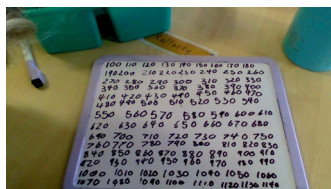 100 110 120 130 140 150 160 170 180
190 200 210 220 230 240 250 260
270 280 290 300 310 320 330
340 350 360 370 380 390 400
410 420 430 440 450 460 470
480 490 500 510 520 530 540
550 560 570 580 590 600 610
620 630 640 650 660 670 680
690 700 710 720 730 740 750
760 770 780 790 800 810 820 830
840 850 860 870 880 890 900 910
920 930 940 950 960 970 980 990
1000 1010 1020 1030 1040 1050 1060
1070 1080 1090 1100 1110 1120 1130 1140